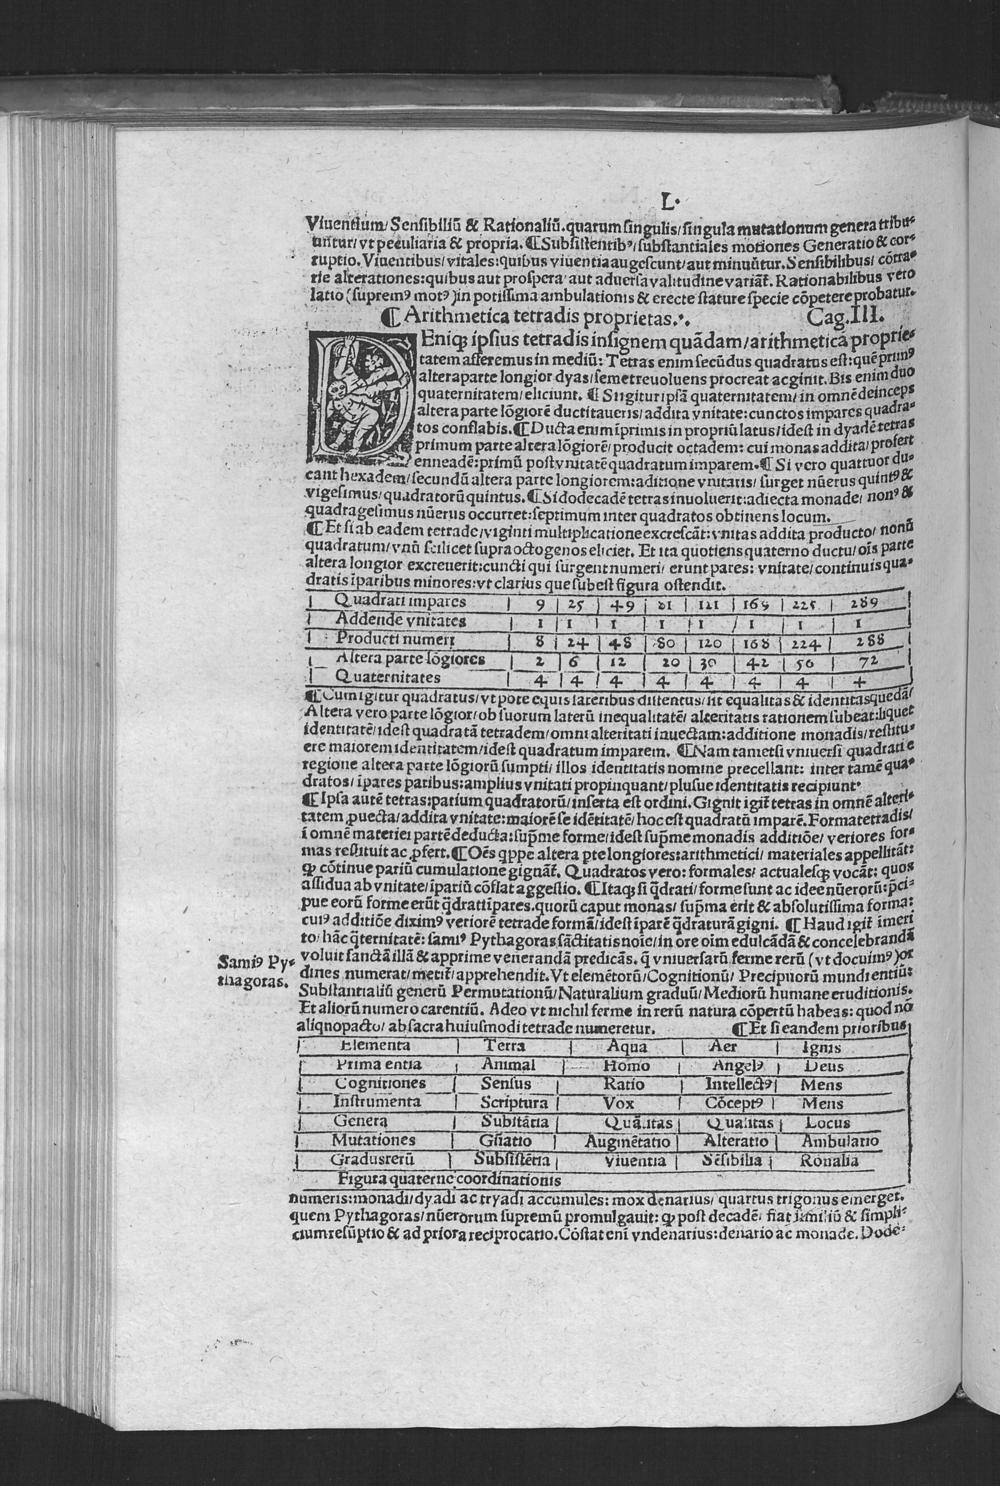 L.
Viuentium/ Sensibiliū & Rationaliū. quarum singulis/ singula mutationum genera tribu-
untur/ vt peculiaria & propria. ¶ Subsistentibꝰ/ substantiales motiones Generatio & cor-
ruptio. Viuentibus/ vitales: quibus viuentia augescunt/ aut minuūtur. Sensibilibus/ cōtra-
rie alterationes: quibus aut prospera aut aduersa valitudine variāt. Rationabilibus vero
latio (supremꝰ motꝰ) in potissima ambulationis & erecte stature specie cōpetere probatur.
¶ Arithmetica tetradis proprietas. Cap. III.
DEniqꝫ ipsius tetradis insignem quādam/ arithmeticā proprie-
tatem asseremus in mediū: Tetras enim secūdus quadratus est: quē primꝰ
altera parte longior dyas/ semet reuoluens procreat ac ginit. Bis enim duo
quaternitatem/ eliciunt. ¶ Si igitur ipsā quaternitatem/ in omnē deinceps
altera parte lōgiorē ductitaueris/ addita vnitate: cunctos impares quadra-
tos conflabis. ¶ Ducta enim īprimis in propriū latus/ idest in dyadē tetras
primum parte altera lōgiorē/ producit octadem: cui monas addita/ profert
enneadē: primū post vnitatē quadratum imparem. ¶ Si vero quattuor du-
cant hexadem/ secundū altera parte longiorem: aditione vnitatis/ surget nūerus quintꝰ &
vigesimus/ quadratorū quintus. ¶ Si dodecadē tetras inuoluerit: adiecta monade/ nonꝰ &
quadragesimus nūerus occurret: septimum inter quadratos obtinens locum.
¶ Et si ab eadem tetrade/ viginti multiplicatione excrescāt: vnitas addita producto/ nonū
quadratum/ vnū scilicet supra octogenos eliciet. Et ita quotiens quaterno ductu/ oīs parte
altera longior excreuerit: cuncti qui surgent numeri/ erunt pares: vnitate/ continuis qua-
dratis īparibus minores: vt clarius que subest figura ostendit.
Quadrati impares | 9 | 25 | 49 | 81 | 121 | 169 | 225 | 289
Addende vnitates | 1 | 1 | 1 | 1 | 1 | 1 | 1 | 1
Producti numeri | 8 | 24 | 48 | 80 | 120 | 168 | 224 | 288
Altera parte lōgiores | 2 | 6 | 12 | 20 | 30 | 42 | 56 | 72
Quaternitates | 4 | 4 | 4 | 4 | 4 | 4 | 4 | 4
¶ Cum igitur quadratus/ vt pote equis lateribus distentus/ sit equalitas & identitas quedā/
Altera vero parte lōgior/ ob suorum laterū inequalitatē/ alteritatis rationem subeat: liquet
identitatē/ idest quadratā tetradem/ omni alteritati inuectam: additione monadis/ restitu-
ere maiorem identitatem/ idest quadratum imparem. ¶ Nam tametsi vniuersi quadrati e
regione altera parte lōgiorū sumpti/ illos identitatis nomine precellant: inter tamē qua-
dratos/ īpares paribus: amplius vnitati propinquant/ plusue identitatis recipiunt.
¶ Ipsa autē tetras: parium quadratorū/ inserta est ordini. Gignit igit̄ tetras in omnē alteri-
tatem ꝓuecta/ addita vnitate: maiorē se idētitatē/ hoc est quadratū imparē. Forma tetradis/
ī omnē materiei partē deducta: supm̄e forme/ idest supm̄e monadis additiōe/ veriores for-
mas restituit ac ꝓfert. ¶ Oēs qppe altera pte longiores: arithmetici/ materiales appellitāt:
ꝙ cōtinue pariū cumulatione gignāt. Quadratos vero: formales/ actualesqꝫ vocāt: quos
assidua ab vnitate/ īpariū cōflat aggestio. ¶ Itaqꝫ si q̄drati/ forme sunt ac idee nūerorū: p̄ci-
pue eorū forme erūt q̄drati īpares. quorū caput monas/ sup̄ma erit & absolutissima forma:
cuiꝰ additiōe diximꝰ veriorē tetrade formā/ idest īparē q̄draturā gigni. ¶ Haud igit̄ īmeri
to/ hāc q̄ternitatē: samiꝰ Pythagoras sāctitatis noīe/ in ore oīm edulcādā & concelebrandā
voluit sanctā illā & apprime venerandā predicās. q̄ vniuersarū ferme rerū (vt docuimꝰ) or
dines numerat/ metit̄/ apprehendit. Vt elemētorū/ Cognitionū/ Precipuorū mundi entiū:
Substantialiū generū Permutationū/ Naturalium graduū/ Mediorū humane eruditionis.
Et aliorū numero carentiū. Adeo vt nichil ferme in rerū natura cōpertū habeas: quod nō
aliquo pacto/ ab sacra huiusmodi tetrade numeretur. ¶ Et si eandem prioribus
Samiꝰ Py-
thagoras.
Elementa | Terra | Aqua | Aer | Ignis
Prima entia | Animal | Homo | Angelꝰ | Deus
Cognitiones | Sensus | Ratio | Intellectꝰ | Mens
Instrumenta | Scriptura | Vox | Cōceptꝰ | Mens
Genera | Substātia | Quātitas | Qualitas | Locus
Mutationes | Gn̄atio | Augmētatio | Alteratio | Ambulatio
Gradus rerū | Subsistētia | Viuentia | Sēsibilia | Ronalia
Figura quaterne coordinationis
numeris: monadi/ dyadi ac tryadi accumules: mox denarius/ quartus trigonus emerget.
quem Pythagoras/ nūerorum supremū promulgauit: ꝙ post decadē/ fiat similiū & simpli-
cium resūptio & ad priora reciprocatio. Cōstat enī vndenarius: denario ac monade. Dode-